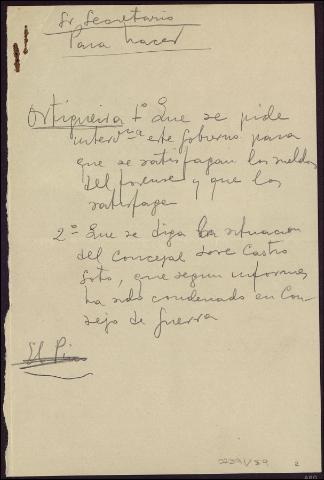 Sr Secretario
Para hacer
Ortigueira 1º Que se pide
interv este Gobierno para
que se satisfagan los sueldos
del forense y que los
satisfagan
2º Que se diga la situacion
del Concejal Jose Castro
Soto, que segun informes
ha sido condenado en Con-
sejo de Guerra
El Pino
2